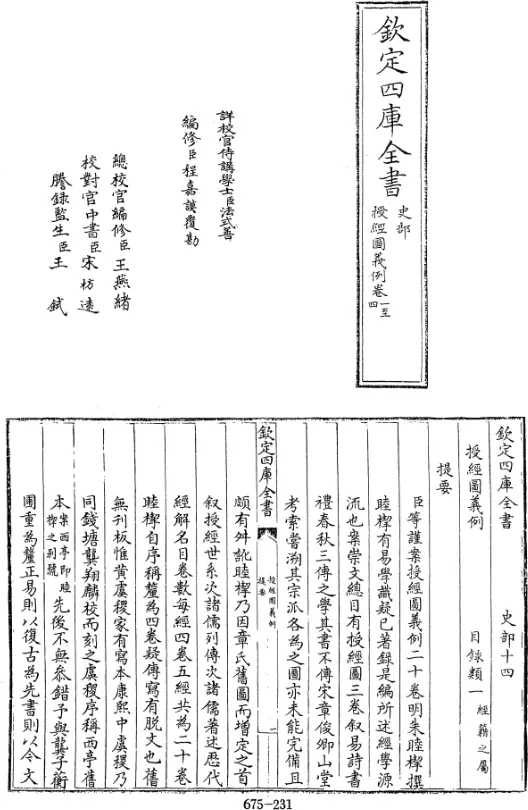 欽定四庫全書
史部
授經圖義例卷一至四
詳校官侍講學士臣法式善
編修臣程嘉謨覆勘
總校官編修臣王燕緒
校對官中書臣宋枋遠
謄錄監生臣王 鉽
欽定四庫全書 史部十四
授經圖義例 目錄類一 經籍之屬
提要
臣等謹案授經圖義例二十卷明朱睦㮮撰
睦㮮有易學識疑已著錄是編所述經學源
流也案崇文總目有授經圖三卷叙易詩書
禮春秋三傳之學其書不傳宋章俊卿山堂
考索嘗溯其宗派各為之圖亦未能完備且
欽定四庫全書 授經圖義例提要 一
頗有舛訛睦㮮乃因章氏舊圖而增定之首
叙授經世系次諸儒列傳次諸儒著述歷代
經解名目卷數每經四卷五經共為二十卷
睦㮮自序稱釐為四卷疑傳寫有脫文也舊
無刊板惟黃虞稷家有寫本康熙中虞稷乃
同錢塘龔翔麟校而刻之虞稷序稱西亭舊
本案西亭即睦㮮之別號先後不無叅錯予與龔子蘅
圃重為釐正易則以復古為先書則以今文
675-231